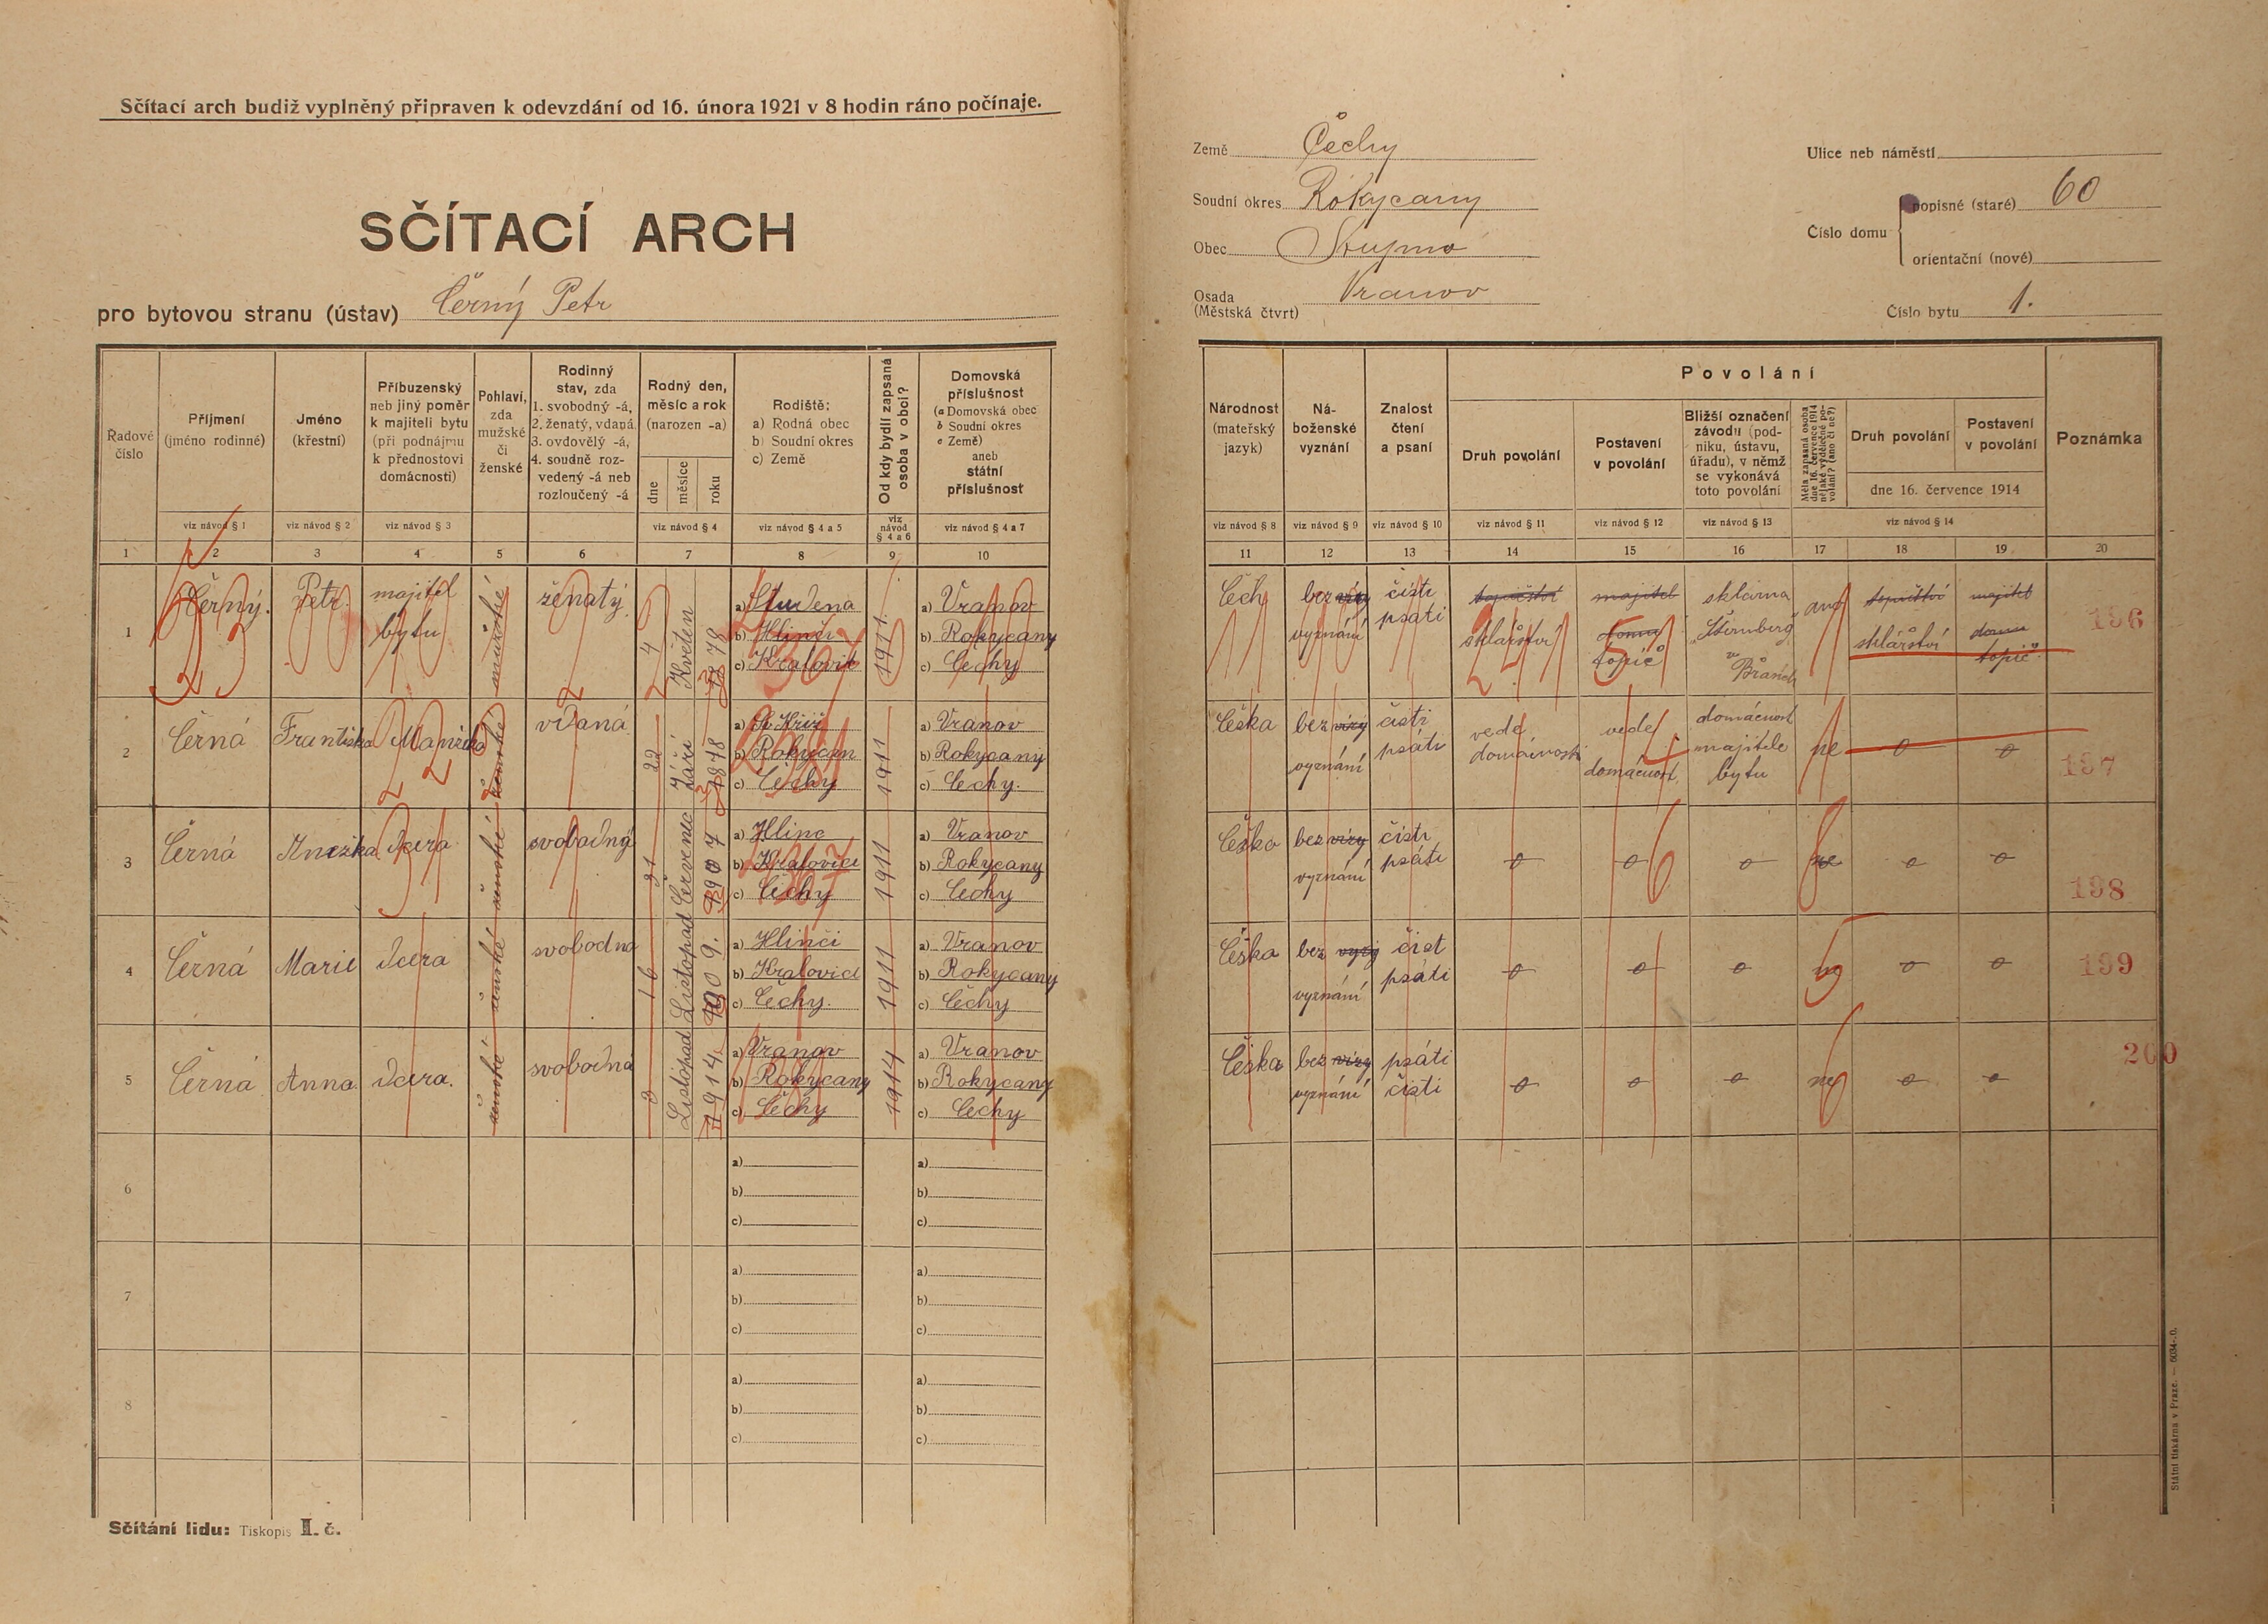 Sčítací arch budiž vyplněný připraven k odevzdání od 16. února 1921 v 8 hodin ráno počínaje.
SČÍTACÍ ARCH
pro bytovou stranu (ústav) Černý Petr
Země Čechy
Soudní okres Rokycany
Obec Stupno
Osada (Městská čtvrt) Vranov
Ulice neb náměstí
Číslo domu
popisné (staré) 60
orientační (nové)
Číslo bytu 1.
Řadové číslo
Příjmení (jméno rodinné)
Jméno (křestní)
Příbuzenský neb jiný poměr k majiteli bytu (při podnájmu k přednostovi domácnosti)
Pohlaví, zda mužské či ženské
Rodinný stav, zda 1. svobodný -á, 2. ženatý, vdaná 3. ovdovělý -á, 4. soudně rozvedený -á neb rozloučený -á
Rodný den, měsíc a rok (narozen -a)
dne měsíce roku
Rodiště: a) Rodná obec b) Soudní okres c) Země
Od kdy bydlí zapsaná osoba v obci?
Domovská příslušnost (a Domovská obec b Soudní okres c Země) aneb státní příslušnost
viz návod § 1
viz návod § 2
viz návod § 3
viz návod § 4
viz návod § 4 a 5
viz návod § 4 a 6
viz návod § 4 a 7
1 2 3 4 5 6 7 8 9 10
Národnost (mateřský jazyk)
Náboženské vyznání
Znalost čtení a psaní
Povolání
Druh povolání
Postavení v povolání
Bližší označení závodu (podniku, ústavu, úřadu), v němž se vykonává toto povolání
Měla zapsaná osoba dne 16. července 1914 nějaké výdělečné povolání? (ano či ne?)
Druh povolání
Postavení v povolání
dne 16. července 1914
Poznámka
viz návod § 8
viz návod § 9
viz návod § 10
viz návod § 11
viz návod § 12
viz návod § 13
viz návod § 14
11 12 13 14 15 16 17 18 19 20
1 Černý. Petr. majitel bytu mužské ženatý 4 Květen 1878
a) Studena
b) Hlinči
c) Kralovic
1911.
a) Vranov
b) Rokycany
c) Čechy
Čech bez víry vyznání čísti psáti topičství sklářství majitel domu topič sklárna Šternberg ano topičství sklářství majitel domu topič 196
2 Černá Františka Manželka ženské vdaná 22 Září 1878
a) Sv Kříž
b) Rokycan
c) Čechy
1911
a) Vranov
b) Rokycany
c) Čechy.
Češka bez víry vyznání čisti psáti vede domácnosti vede domácnost domácnost majitele bytu ne o o 197
3 Černá dcera ženské svobodná 31 Červenec 1907
a) Hlinc
b) Kralovice
c) Čechy
1911
a) Vranov
b) Rokycany
c) Čechy
Češka bez víry vyznání čísti psáti o o o ne o o 198
4 Černá Marie dcera ženské svobodna 16 Listopad 1909.
a) Hlinči
b) Kralovice
c) Čechy.
1911
a) Vranov
b) Rokycany
c) Čechy
Češka bez vyznání čist psáti o o o o o 199
5 Černá Anna dcera. ženské svobodná 3 Listopad 1914.
a) Vranov
b) Rokycany
c) Čechy
1914
a) Vranov
b) Rokycany
c) Čechy
Češka bez víry vyznání psáti čisti o o o ne o o 200
6 a) b) c) a) b) c)
7 a) b) c) a) b) c)
8 a) b) c) a) b) c)
Sčítání lidu: Tiskopis I. č.
Státní tiskárna v Praze. — 6034-.0.